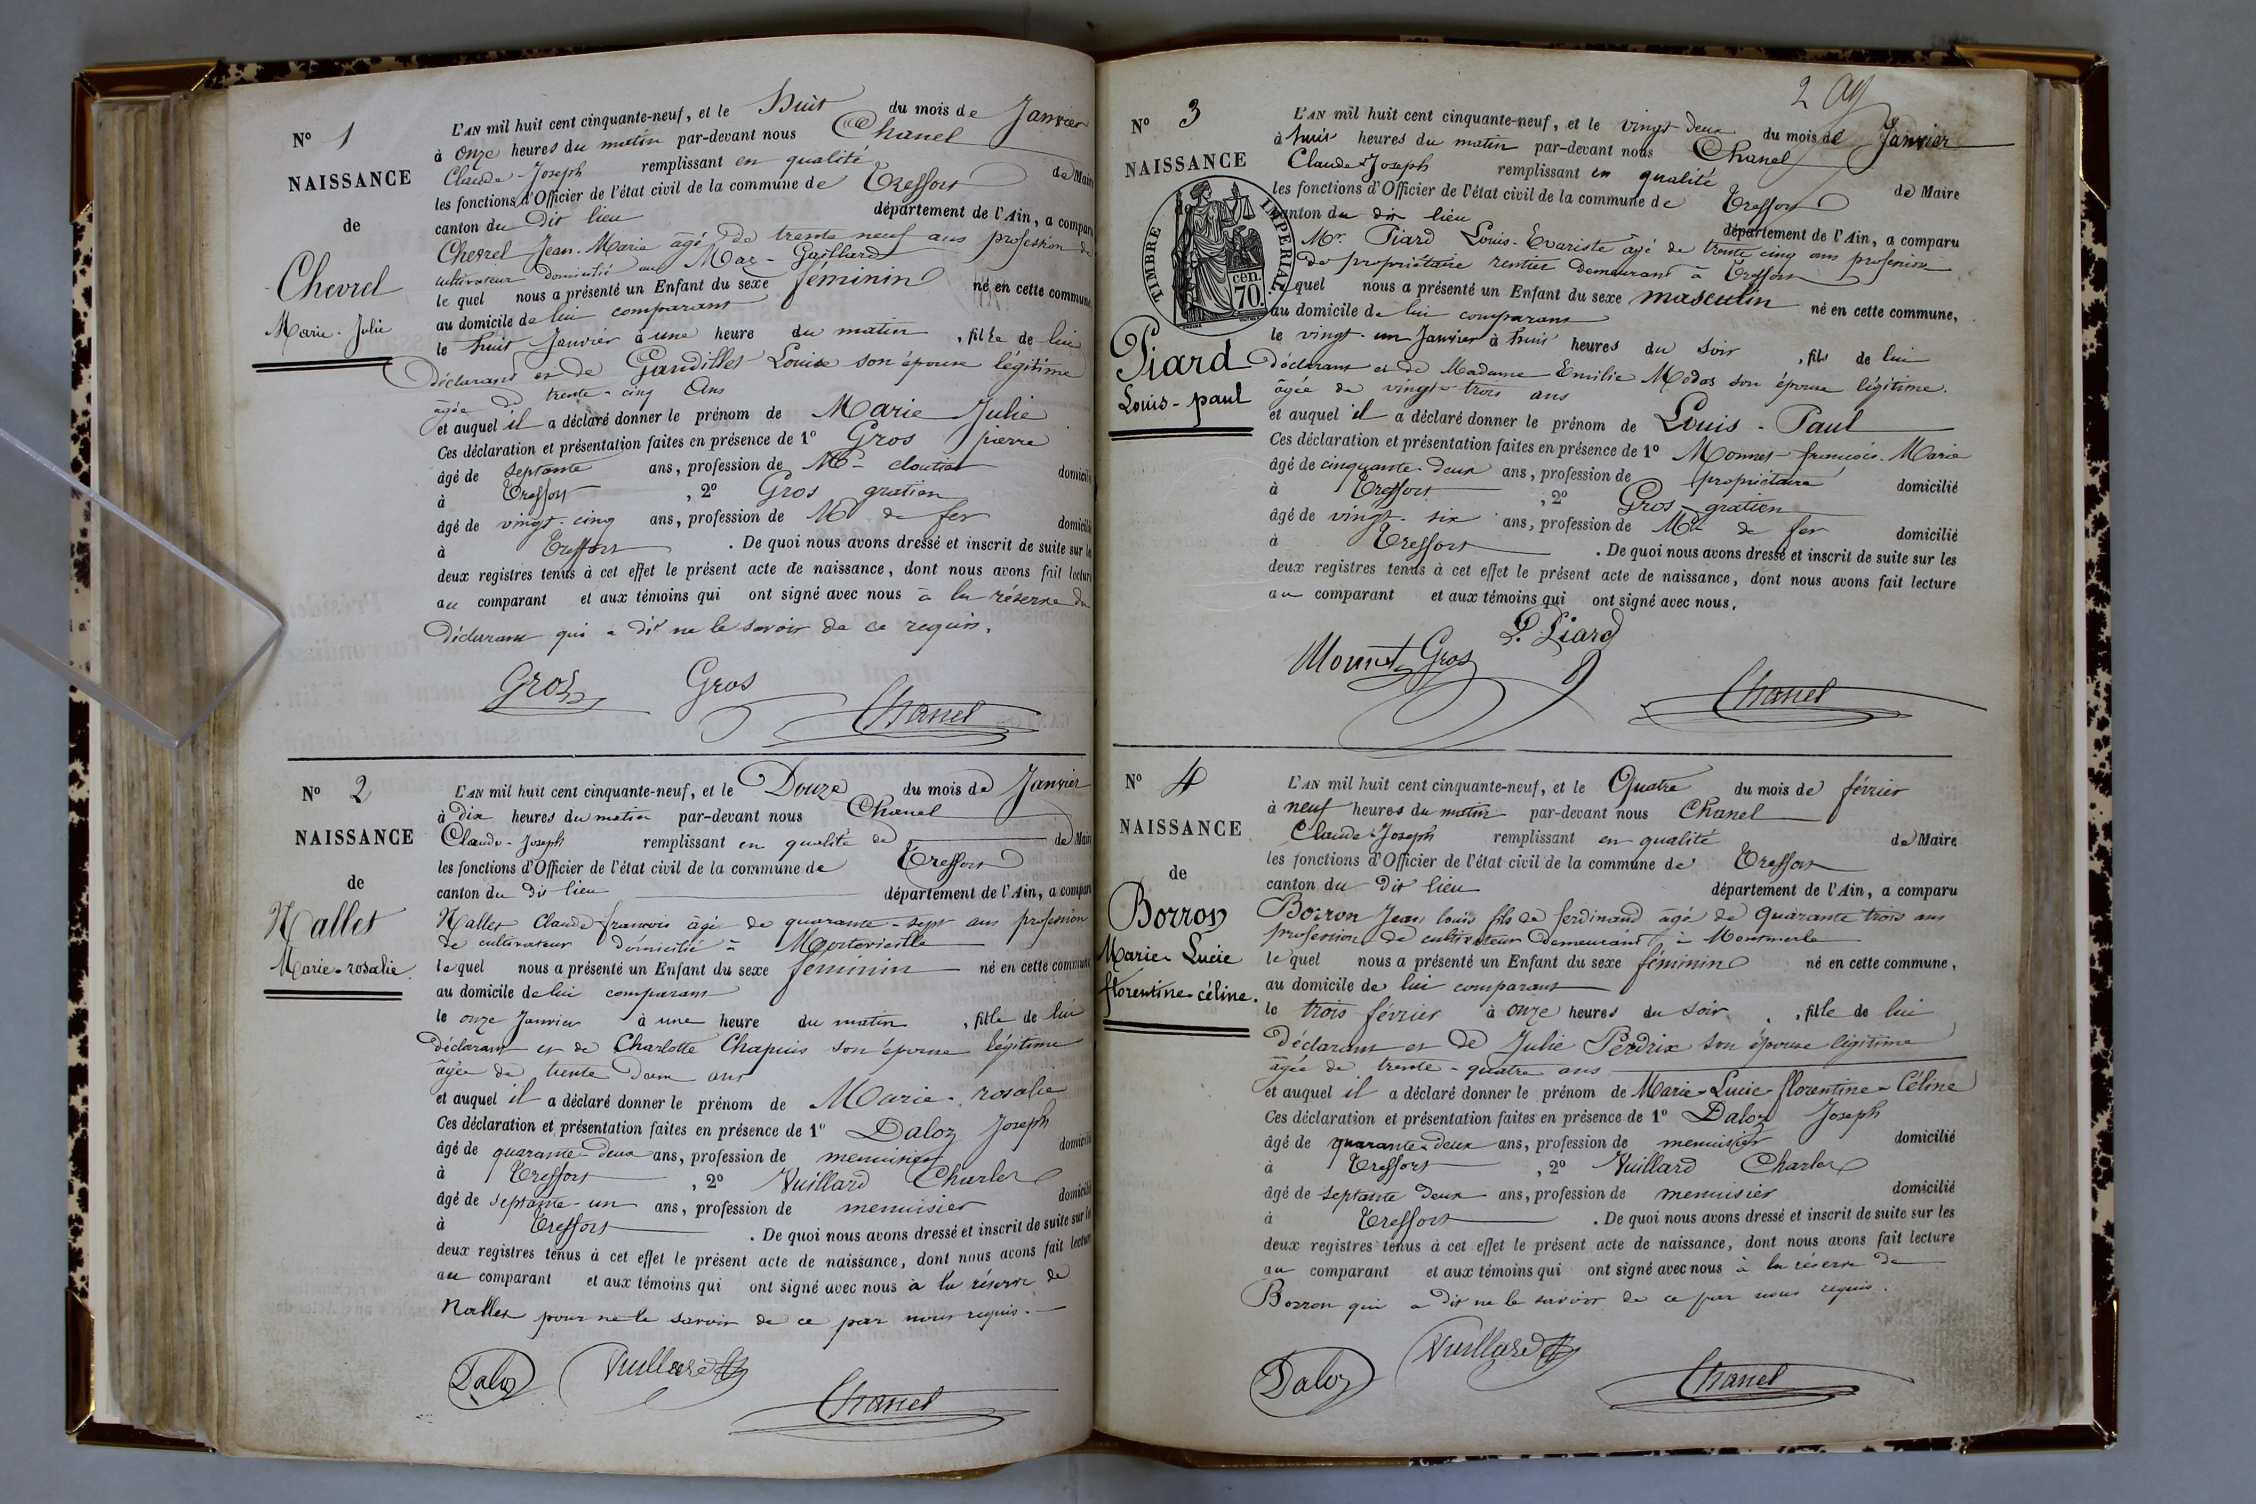 N° 1
NAISSANCE
de
Chevrel
Marie-Julie
L'AN mil huit cent cinquante-neuf, et le huit du mois de Janvier
à onze heures du matin par-devant nous Chanel
Claude-Joseph remplissant en qualité de Maire
les fonctions d'Officier de l'état civil de la commune de Treffort
canton du dit lieu département de l'Ain, a comparu
Chevrel Jean-Marie âgé de trente neuf ans profession de
cultivateur domicilié au Gaillard
le quel nous a présenté un Enfant du sexe féminin né en cette commune
au domicile de lui comparant
le huit Janvier à une heure du matin, fille de lui
déclarant et de Louise son épouse légitime
âgée de trente-cinq ans
et auquel il a déclaré donner le prénom de Marie Julie
Ces déclaration et présentation faites en présence de 1° Gros pierre
âgé de septante ans, profession de Md cloutier domicilié
à Treffort, 2° Gros gratien
âgé de vingt-cinq ans, profession de Md de fer domicilié
à Treffort. De quoi nous avons dressé et inscrit de suite sur les
deux registres tenus à cet effet le présent acte de naissance, dont nous avons fait lecture
au comparant et aux témoins qui ont signé avec nous à la réserve du
déclarant qui a dit ne le savoir de ce requis.
Gros Gros
Chanel
N° 2
NAISSANCE
de
Nallet
Marie-rosalie
L'AN mil huit cent cinquante-neuf, et le Douze du mois de Janvier
à dix heures du matin par-devant nous Chanel
Claude-Joseph remplissant en qualité de de Maire
les fonctions d'Officier de l'état civil de la commune de Treffort
canton du dit lieu département de l'Ain, a comparu
Nallet Claude françois âgé de quarante-sept ans profession
de cultivateur domicilié à Montorieille
le quel nous a présenté un Enfant du sexe féminin né en cette commune
au domicile de lui comparant
le onze Janvier à une heure du matin, fille de lui
déclarant et de Charlotte Chapuis son épouse légitime
âgée de trente deux ans
et auquel il a déclaré donner le prénom de Marie-rosalie
Ces déclaration et présentation faites en présence de 1° Daloz Joseph
âgé de quarante-deux ans, profession de menuisier domicilié
à Treffort, 2° Vuillard Charles
âgé de septante-un ans, profession de menuisier domicilié
à Treffort. De quoi nous avons dressé et inscrit de suite sur les
deux registres tenus à cet effet le présent acte de naissance, dont nous avons fait lecture
au comparant et aux témoins qui ont signé avec nous à la réserve de
Nallet pour ne le savoir de ce par nous requis.
Daloz Vuillard
Chanel
2
N° 3
NAISSANCE
TIMBRE IMPERIAL
70 cen.
Piard
Louis-paul
L'AN mil huit cent cinquante-neuf, et le vingt-deux du mois de Janvier
à huit heures du matin par-devant nous Chanel
Claude-Joseph remplissant en qualité de Maire
les fonctions d'Officier de l'état civil de la commune de Treffort
canton du dit lieu département de l'Ain, a comparu
Mr. Piard Louis-Evariste âgé de trente cinq ans profession
de propriétaire rentier demeurant à Treffort
quel nous a présenté un Enfant du sexe masculin né en cette commune,
au domicile de lui comparant
le vingt-un Janvier à huit heures du soir, fils de lui
déclarant et de Madame Emilie Modas son épouse légitime.
âgée de vingt-trois ans
et auquel il a déclaré donner le prénom de Louis-Paul
Ces déclaration et présentation faites en présence de 1° Monnet françois-Marie
âgé de cinquante-deux ans, profession de propriétaire domicilié
à Treffort, 2° Gros gratien
âgé de vingt-six ans, profession de Md de fer domicilié
à Treffort. De quoi nous avons dressé et inscrit de suite sur les
deux registres tenus à cet effet le présent acte de naissance, dont nous avons fait lecture
au comparant et aux témoins qui ont signé avec nous.
L. Piard
Monnet Gros
Chanel
N° 4
NAISSANCE
de
Borron
Marie-Lucie
florentine-céline.
L'AN mil huit cent cinquante-neuf, et le Quatre du mois de février
à neuf heures du matin par-devant nous Chanel
Claude-Joseph remplissant en qualité de Maire
les fonctions d'Officier de l'état civil de la commune de Treffort
canton du dit lieu département de l'Ain, a comparu
Borron Jean louis fils de ferdinand âgé de quarante trois ans
profession de cultivateur demeurant à Montmerle
le quel nous a présenté un Enfant du sexe féminin né en cette commune,
au domicile de lui comparant
le trois février à onze heures du soir, fille de lui
déclarant et de Julie Perdrix son épouse légitime
âgée de trente-quatre ans
et auquel il a déclaré donner le prénom de Marie-Lucie-florentine-Céline
Ces déclaration et présentation faites en présence de 1° Daloz Joseph
âgé de quarante-deux ans, profession de menuisier domicilié
à Treffort, 2° Vuillard Charles
âgé de septante deux ans, profession de menuisier domicilié
à Treffort. De quoi nous avons dressé et inscrit de suite sur les
deux registres tenus à cet effet le présent acte de naissance, dont nous avons fait lecture
au comparant et aux témoins qui ont signé avec nous à la réserve de
Borron qui a dit ne le savoir de ce par nous requis.
Daloz Vuillard
Chanel